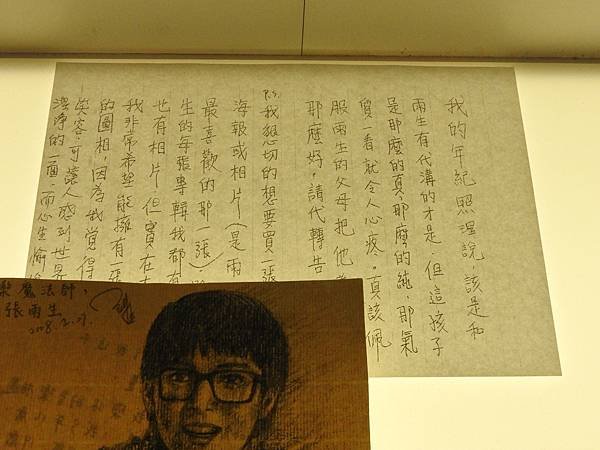 我的年紀照理說，該是和
雨生有代溝的才是．但這孩子
是那麼的真，那麼的純，那氣
質一看就令人心疼。真該佩
服雨生的父母把他
那麼好，請代轉告
P.S. 我懇切的想要買一張
海報或相片（是雨
最喜歡的那一張）
生的每張專輯我都有
也有相片 但實在
我非常希望能擁有一張
的圖相，因為我覺得
笑容，可讓人感到世界
潔淨的一面，而心生
樂魔法師，
張雨生
2008.2.27.